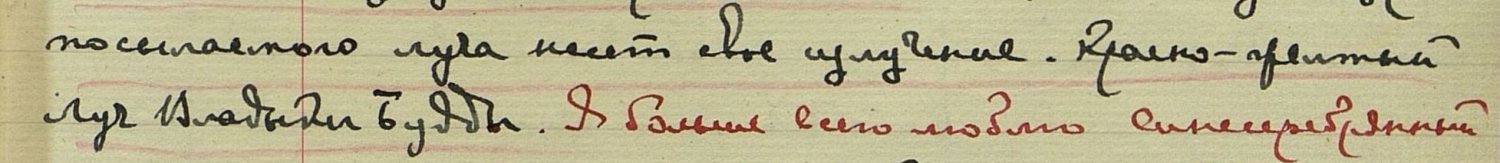 посылаемого луча несет свое излучение. Красно-желтый
Луч Владыки Будды. Я больше всего люблю синесеребрянный